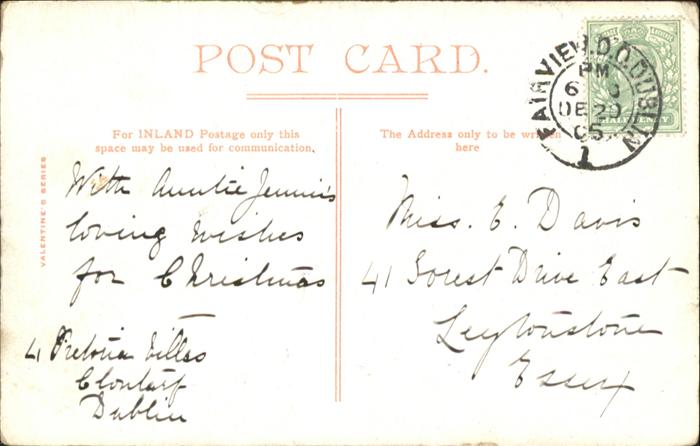 POST CARD.
FAIRVIEW.D.O.DUBLIN
PM
DE 20
05
1
HALFPENNY
For INLAND Postage only this
space may be used for communication.
The Address only to be written
here
VALENTINE'S SERIES
With Auntie Jennie's
loving wishes
for Christmas
4 Pretoria Villas
Clontarf
Dublin
Miss. E. Davis
41 Forest Drive East
Leytonstone
Essex